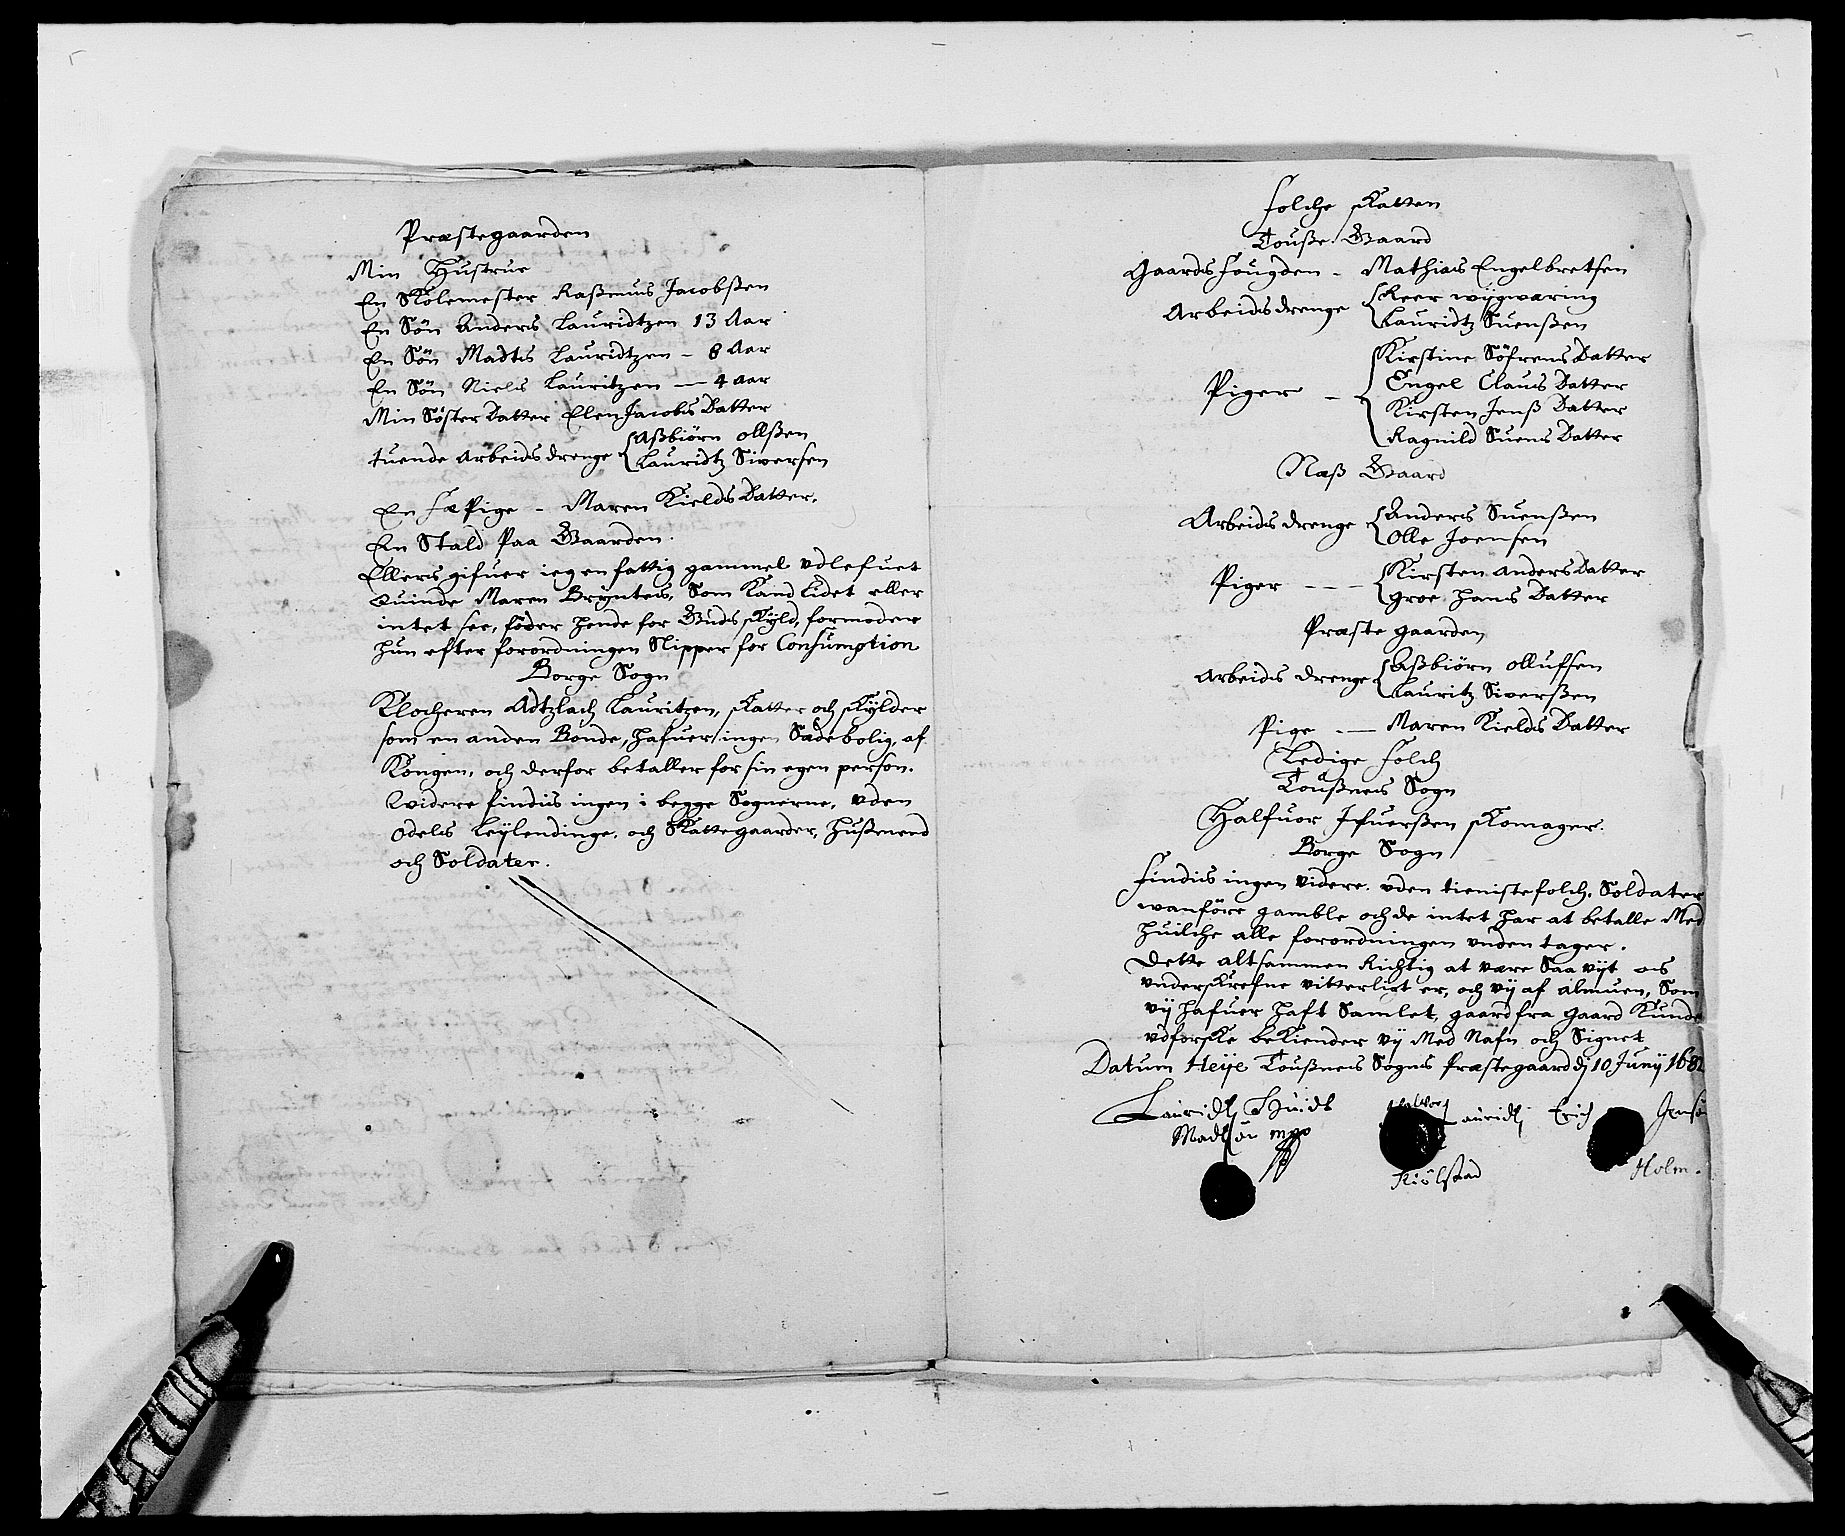 Præstegaarden
Min Hustrue
En Skolemester Rasmus Jacobsen
En Sön Anders Lauridtzen 13 Aar
En Sön Madtis Lauridtzen - 8 Aar
En Sön Niels Lauritzen - 4 aar
Min Söster Datter Elen Jacobs Datter
tuende Arbeidsdrenge { Aßbiörn ollßen
Lauridtz Siversen
En fæPige - Maren Kields Datter.
En Stald Paa Gaarden.
Ellers gifuer ieg en fattig gammel vdlefuet
Quinde Maren Brynteis, Som Kand lidet eller
intet see, föder hende for Guds skyld, formoder
hun efter forordningen Slipper for Consumption
Borge Sogn
Klocheren Adtzlach Lauritzen, skatter och skylder
som en anden Bonde, hafuer ingen Sædebolig, af
Kongen, och derfor betaller for sin egen person.
Widere findiis ingen i begge Sognerne, vden
Odels Leylendinge, och Skattegaarder, Hußmend
och Soldater.
Folche skatten
Touße Gaard
Gaards fougden - Mathias Engelbretsen
Arbeidsdrenge { Reer wijgwæring
Lauridtz Suenßen
Piger - { Kirstine Söfrens Datter
Engel Claus Datter
Kirsten Jenß Datter
Ragnild Suens Datter
Næß Gaard
Arbeids drenge { Anders Suenßen
Olle Joensen
Piger - - { Kirsten Anders Datter
Groe Hans Datter
Præste gaarden
Arbeids drenge { Aßbiörn ollufsen
Lauritz Siverßen
Pige - - Maren Kields Datter
Ledige folch
Toußneis Sogn
Halfuor Ifuerßen skomager.
Borge Sogn
Findiis ingen videre, vden tienistefolch, Soldater
wanföre gamble och de intet har at betalle Med
huilche alle forordningen vnden tager.
Dette altsammen Richtig at være Saa vijt os
vnderskrefne vitterligt er, och vij af almuen, Som
vij hafuer haft Samlet, gaard fra gaard Kunde
vdforske bekiender vij Med Nafn och Signet
Datum Heije Toußneis Sogns Præstegaard dj 10 Junij 1682
Lauridtz Huids Halwor Lauridtz Erich Jensö
Madtzön mpp
Kiölstad Holm.